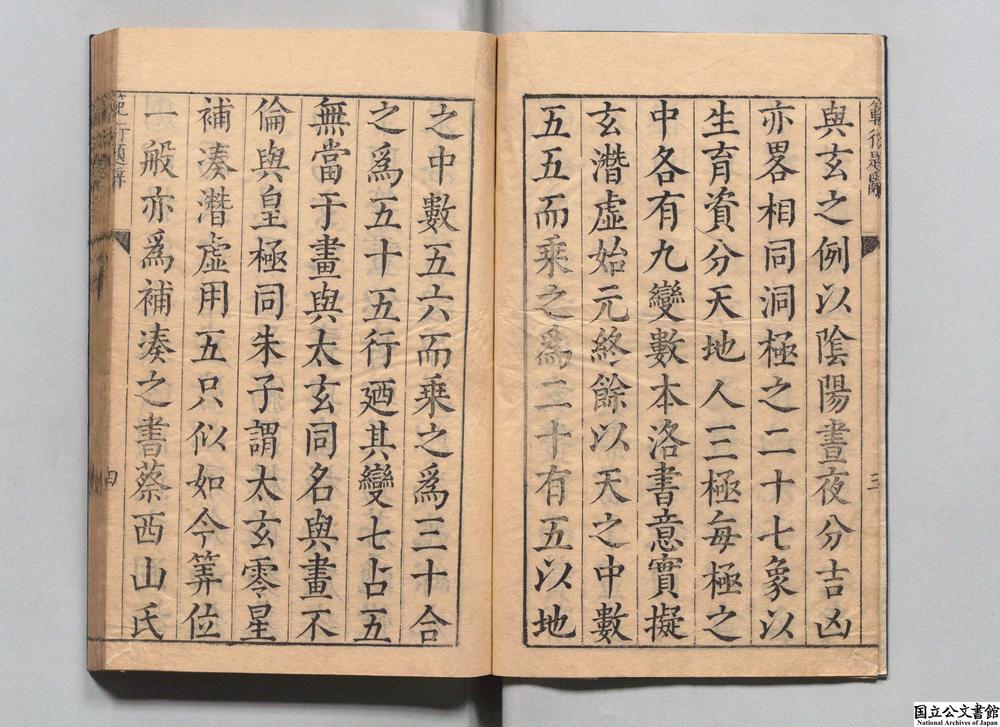 與玄之例以陰陽晝夜分吉凶
亦畧相同洞極之二十七象以
生育資分天地人三極每極之
中各有九變數本洛書意實擬
玄潛虛始元終餘以天之中數
五五而乘之爲二十有五以地
之中數五六而乘之爲三十合
之爲五十五行廼其變七占五
無當于畫與太玄同名與畫不
倫與皇極同朱子謂太玄零星
補湊潛虛用五只似如今筭位
一般亦爲補湊之書蔡西山氏
三
四
国立公文書館
National Archives of Japan